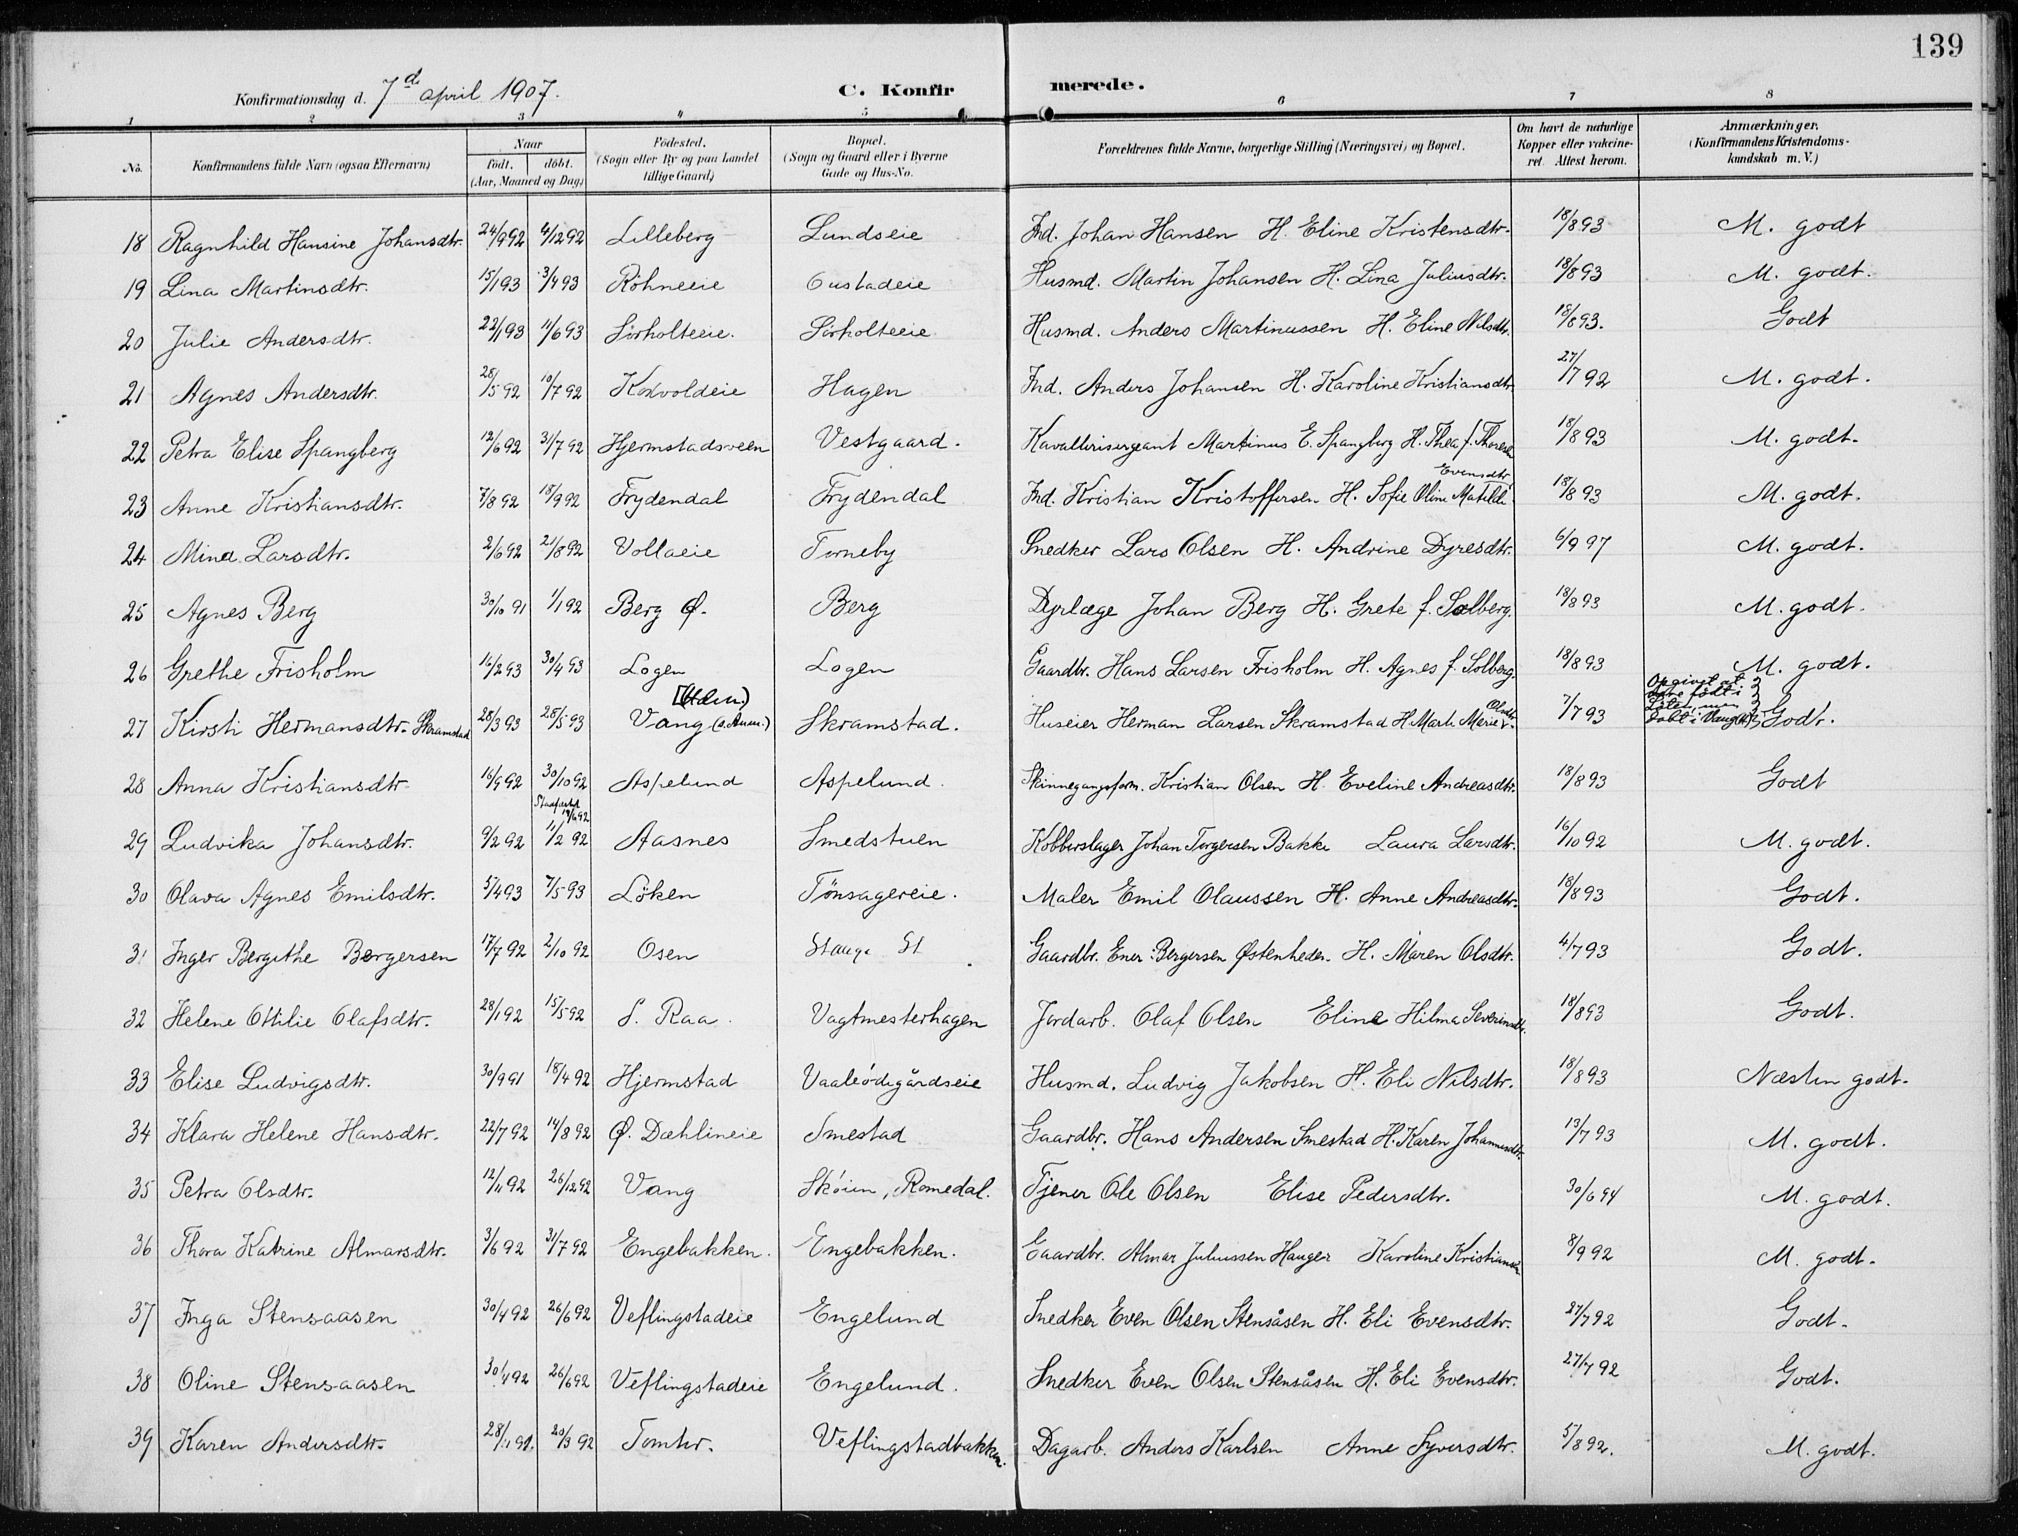 139
Konfirmationsdag d. 7de april 1907.
C. Konfirmerede.
1 2 3 4 5 6 7 8
No. Konfirmandens fulde Navn (ogsaa Efternavn) Naar født. døbt. (Aar, Maaned og Dag) Fødested. (Sogn eller By og paa Landet tillige Gaard) Bopæl. (Sogn og Gaard eller i Byerne Gade og Hus-No. Forældrenes fulde Navne, borgerlige Stilling (Næringsvei) og Bopæl. Om havt de naturlige Kopper eller vakcineret. Attest herom. Anmærkninger. (Konfirmandens Kristendomskundskab m. V.)
18 Ragnhild Hansine Johansdtr. 24/9 92 4/12 92 Lilleberg Lundseie Ind. Johan Hansen H. Eline Kristensdtr. 18/8 93 M. godt
19 Lina Martinsdtr. 15/1 93 3/4 93 Röhneeie Oustadeie Husmd. Martin Johansen H. Lina Juliusdtr. 18/8 93 M. godt.
20 Julie Andersdtr. 22/1 93 11/6 93 Sörholteeie. Sörholteeie Husmd. Anders Martinussen H. Eline Nilsdtr. 18/8 93. Godt
21 Agnes Andersdtr. 28/5 92 10/7 92 Korvoldeie Hagen Ind. Anders Johansen H. Karoline Kristiansdtr 27/7 92 M. godt.
22 Petra Elise Spangberg 12/6 92 31/7 92 Hjermstadsveen Vestgaard. Kavallerisergeant Martinus E. Spangberg H. Thea f. Thoresen 18/8 93 M. godt.
23 Anne Kristiansdtr. 7/8 92 18/9 92 Frydendal Frydendal Ind. Kristian Kristoffersen H. Sofie Oline Matilde Evensdtr. 18/8 93 M. godt.
24 Mina Larsdtr. 2/6 92 21/8 92 Vollaeie Torneby Snedker Lars Olsen H. Andrine Dyresdtr. 6/9 97 M. godt.
25 Agnes Berg 30/10 91 1/1 92 Berg Ø. Berg Dyrlæge Johan Berg H. Grete f. Solberg. 18/8 93 M. godt.
26 Grethe Frisholm 16/2 93 30/4 93 Logen Logen Gaardbr. Hans Larsen Frisholm H. Agnes f. Solberg. 18/8 93 M. godt.
27 Kirsti Hermansdtr. Skramstad 28/3 93 28/5 93 Vang (s. Anm.) Skramstad. Huseier Herman Larsen Skramstad H. Marte Marie Olsdtr. 7/7 93 Opgivet at være født i Löten, men døbt i Vang Godt.
28 Anna Kristiansdtr. 16/9 92 30/10 92 Aspelund Aspelund. Skinnegangsform. Kristian Olsen H. Eveline Andreasdtr. 18/8 93 Godt
29 Ludvika Johansdtr. 9/2 92 11/2 92 Stadfæstet 19/6 92 Aasnes Smedstuen Kobberslager Johan Torgersen Bakke Laura Larsdtr. 16/10 92 M. godt.
30 Olava Agnes Emilsdtr. 5/4 93 7/5 93 Löken Tönsagereie. Maler Emil Olaussen H. Anne Andreasdtr. 18/8 93 Godt.
31 Inger Bergithe Bergersen 17/7 92 2/10 92 Osen Stange St Gaardbr. Ener Bergersen Østenheden. H. Maren Olsdtr. 4/7 93 Godt.
32 Helene Ottilie Olafsdtr. 28/1 92 15/5 92 S. Raa. Vagtmesterhagen Jordarb. Olaf Olsen Eline Hilma Severinsdtr. 18/8 93 Godt.
33 Elise Ludvigsdtr. 30/9 91 18/4 92 Hjermstad Vaaleödegårdseie Husmd. Ludvig Jakobsen H. Eli Nilsdtr. 18/8 93 Næsten godt.
34 Klara Helene Hansdtr. 22/7 92 14/8 92 Ø. Dæhlineie Smestad Gaardbr. Hans Andersen Smestad H. Karen Johannesdtr. 13/7 93 M. godt.
35 Petra Olsdtr. 12/11 92 26/12 92 Vang Sköien, Romedal. Tjener Ole Olsen Elise Pedersdtr. 30/6 94 M. godt.
36 Thora Katrine Almarsdtr. 3/6 92 31/7 92 Engebakken. Engebakken. Gaardbr. Almar Juliussen Hauger Karoline Kristiansdtr 8/9 92 M. godt.
37 Inga Stensaasen 30/4 92 26/6 92 Veflingstadeie Engelund Snedker Even Olsen Stensåsen H. Eli Evensdtr. 27/7 92 Godt.
38 Oline Stensaasen 30/4 92 26/6 92 Veflingstadeie Engelund. Snedker Even Olsen Stensåsen H. Eli Evensdtr. 27/7 92 Godt.
39 Karen Andersdtr. 28/11 91. 20/3 92 Tomter. Veflingstadbakken. Dagarb. Anders Karlsen Anne Syversdtr. 5/8 92. M. godt.